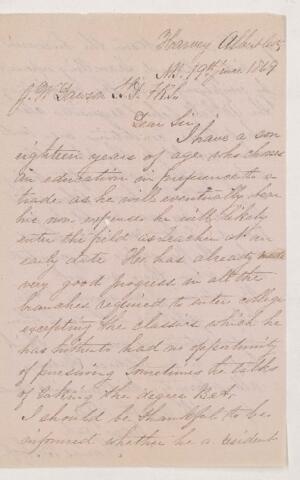 Harvey Albert Co
NB. 19th June 1869
J. W. Dawson L.L.D. F.R.S.
Dear Sir
I have a son
eighteen years of age who chooses
an education in preference to a
trade as he will eventually bear
his own expenses he will likely
enter the field as teacher at an
early date He has already made
very good progress in all the
branches required to enter college
excepting the classics which he
has hitherto had no opportunity
of pursuing sometimes he talks
of taking the degree B.A.
I should be thankful to be
informed whether he a resident